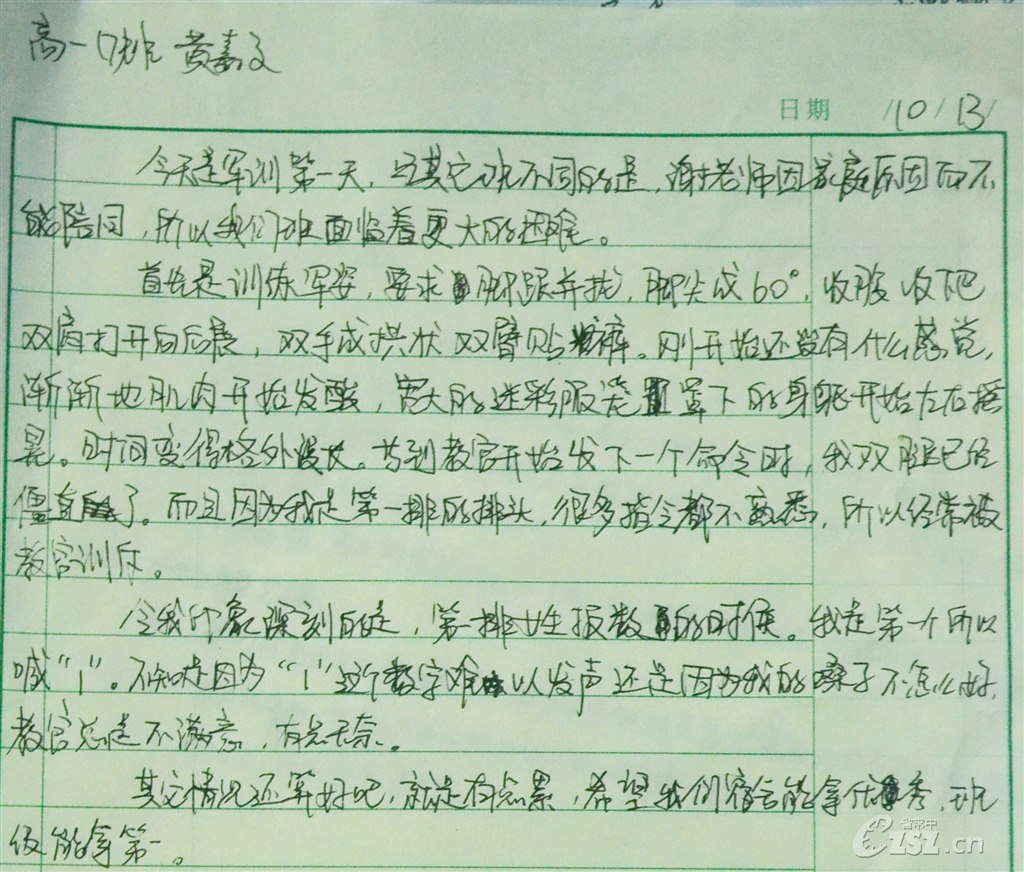 高一17班 黄嘉文
日期 10/13/
今天是军训第一天,与其它班不同的是,谢老师因家庭原因而不
能陪同,所以我们班面临着更大的困难。
首先是训练军姿,要求脚跟并拢,脚尖成60°,收腹收下巴
双肩打开向后展,双手成拱状双臂贴裤。刚开始还没有什么感觉,
渐渐地肌肉开始发酸,宽大的迷彩服笼罩下的身躯开始左右摇
晃。时间变得格外漫长。等到教官开始发下一个命令时,我双腿已经
僵直了。而且因为我是第一排的排头,很多指令都不熟悉,所以经常被
教官训斥。
令我印象深刻的是,第一排女生报数的时候。我是第一个所以
喊“1”。不知是因为“1”这个数字难以发声还是因为我的嗓子不怎么好,
教官总是不满意,有点无奈。
其它情况还算好吧,就是有点累,希望我们宿舍能拿优秀,班
级能拿第一。
省常中
CZSLZ.cn